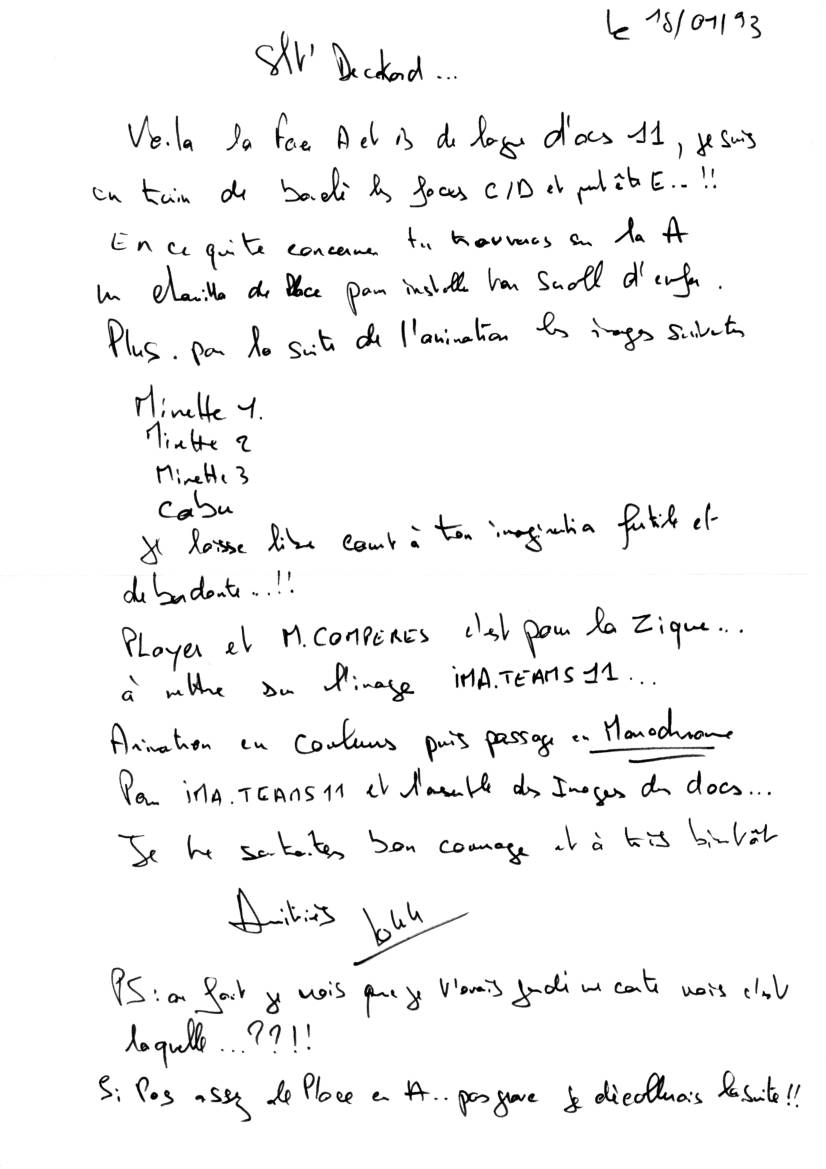 le 18/01/93
Slt' Deckard...
Voila la face A et B de logue d'ocs 11, je suis
en train de les faces C/D et peut être E...!!
En ce qui te concerne tu trouveras en la A
un de place pour installer ton scroll d'enfer.
Plus. pour la suite de l'animation les images suivantes
Minette 1.
Minette 2
Minette 3
Cabu
Je laisse libre court à ton imagination futile et
debordante...!!
PLayer et M.COMPERES c'est pour la Zique...
à mettre sur l'image iMA.TEAMS 11...
Animation en couleurs puis passage en Monochrome
Pour iMA.TEAMS 11 et l'ensemble des Images du docs...
Je te souhaites bon courage et à très bientôt
Amitiés
PS: au fait je crois que je t'avais une carte mais c'est
laquelle...??!!
Si Pas assez de Place en A.. pas grave je la suite!!